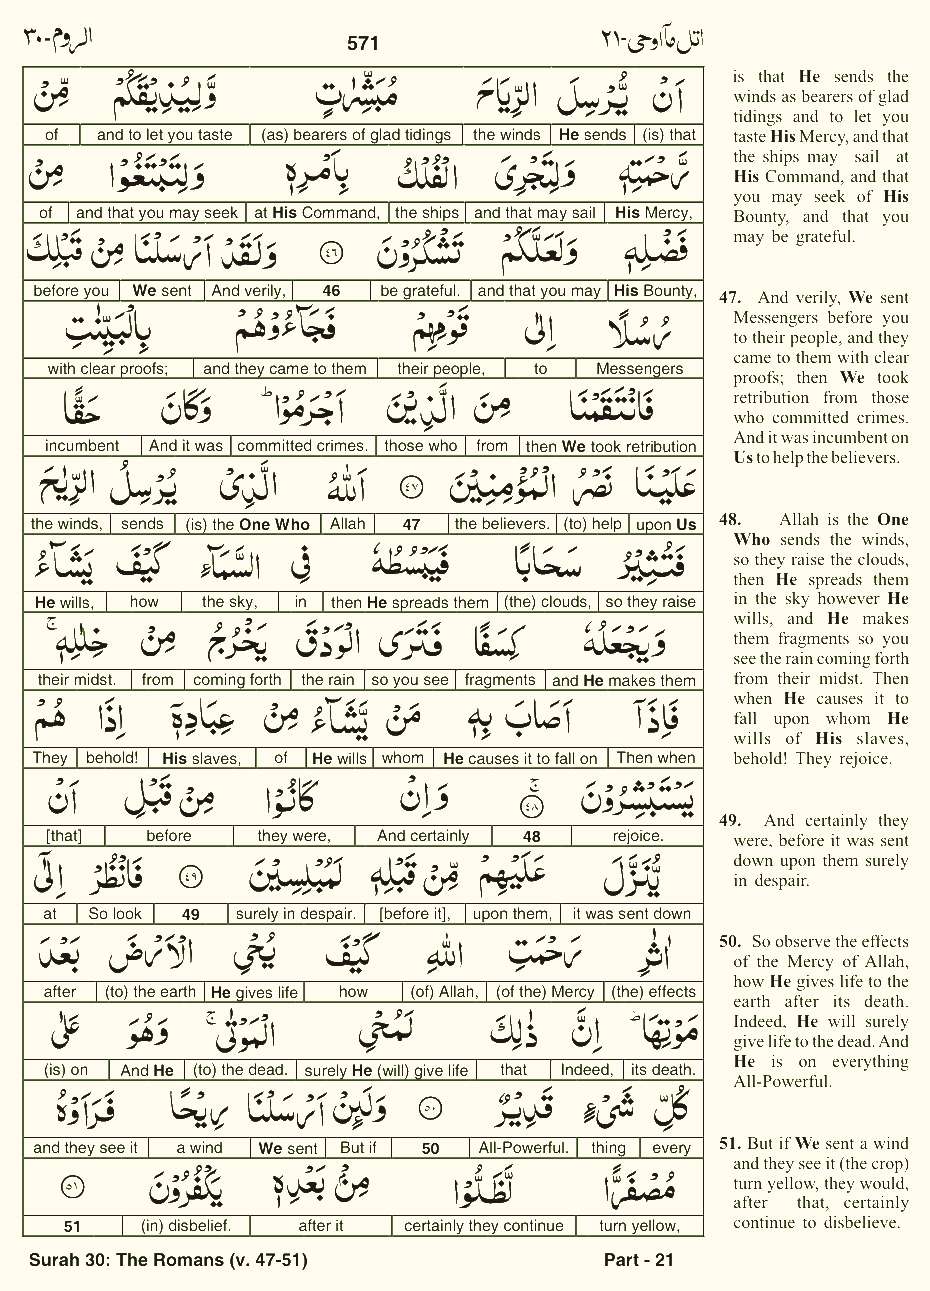 الروم-٣٠
571
اتل مآ اوحى-٢١
اَنْ يُّرْسِلَ الرِّيَاحَ مُبَشِّرٰتٍ وَّلِيُذِيْقَكُمْ مِّنْ
of | and to let you taste | (as) bearers of glad tidings | the winds | He sends | (is) that
رَّحْمَتِهٖ وَلِتَجْرِىَ الْفُلْكُ بِاَمْرِهٖ وَلِتَبْتَغُوْا مِنْ
of | and that you may seek | at His Command, | the ships | and that may sail | His Mercy,
فَضْلِهٖ وَلَعَلَّكُمْ تَشْكُرُوْنَ ٤٦ وَلَقَدْ اَرْسَلْنَا مِنْ قَبْلِكَ
before you | We sent | And verily, | 46 | be grateful. | and that you may | His Bounty,
رُسُلًا اِلٰى قَوْمِهِمْ فَجَآءُوْهُمْ بِالْبَيِّنٰتِ
with clear proofs; | and they came to them | their people, | to | Messengers
فَانْتَقَمْنَا مِنَ الَّذِيْنَ اَجْرَمُوْا ؕ وَكَانَ حَقًّا
incumbent | And it was | committed crimes. | those who | from | then We took retribution
عَلَيْنَا نَصْرُ الْمُؤْمِنِيْنَ ٤٧ اَللّٰهُ الَّذِىْ يُرْسِلُ الرِّيٰحَ
the winds, | sends | (is) the One Who | Allah | 47 | the believers. | (to) help | upon Us
فَتُثِيْرُ سَحَابًا فَيَبْسُطُهٗ فِى السَّمَآءِ كَيْفَ يَشَآءُ
He wills, | how | the sky, | in | then He spreads them | (the) clouds, | so they raise
وَيَجْعَلُهٗ كِسَفًا فَتَرَى الْوَدْقَ يَخْرُجُ مِنْ خِلٰلِهٖ ۚ
their midst. | from | coming forth | the rain | so you see | fragments | and He makes them
فَاِذَاۤ اَصَابَ بِهٖ مَنْ يَّشَآءُ مِنْ عِبَادِهٖۤ اِذَا هُمْ
They | behold! | His slaves, | of | He wills | whom | He causes it to fall on | Then when
يَسْتَبْشِرُوْنَ ۚ ٤٨ وَاِنْ كَانُوْا مِنْ قَبْلِ اَنْ
[that] | before | they were, | And certainly | 48 | rejoice.
يُّنَزَّلَ عَلَيْهِمْ مِّنْ قَبْلِهٖ لَمُبْلِسِيْنَ ٤٩ فَانْظُرْ اِلٰٓى
at | So look | 49 | surely in despair. | [before it], | upon them, | it was sent down
اٰثٰرِ رَحْمَتِ اللّٰهِ كَيْفَ يُحْىِ الْاَرْضَ بَعْدَ
after | (to) the earth | He gives life | how | (of) Allah, | (of the) Mercy | (the) effects
مَوْتِهَا ؕ اِنَّ ذٰلِكَ لَمُحْىِ الْمَوْتٰى ۚ وَهُوَ عَلٰى
(is) on | And He | (to) the dead. | surely He (will) give life | that | Indeed, | its death.
كُلِّ شَىْءٍ قَدِيْرٌ ٥٠ وَلَئِنْ اَرْسَلْنَا رِيْحًا فَرَاَوْهُ
and they see it | a wind | We sent | But if | 50 | All-Powerful. | thing | every
مُصْفَرًّا لَّظَلُّوْا مِنْۢ بَعْدِهٖ يَكْفُرُوْنَ ٥١
51 | (in) disbelief. | after it | certainly they continue | turn yellow,
is that He sends the
winds as bearers of glad
tidings and to let you
taste His Mercy, and that
the ships may sail at
His Command, and that
you may seek of His
Bounty, and that you
may be grateful.
47. And verily, We sent
Messengers before you
to their people, and they
came to them with clear
proofs; then We took
retribution from those
who committed crimes.
And it was incumbent on
Us to help the believers.
48. Allah is the One
Who sends the winds,
so they raise the clouds,
then He spreads them
in the sky however He
wills, and He makes
them fragments so you
see the rain coming forth
from their midst. Then
when He causes it to
fall upon whom He
wills of His slaves,
behold! They rejoice.
49. And certainly they
were, before it was sent
down upon them surely
in despair.
50. So observe the effects
of the Mercy of Allah,
how He gives life to the
earth after its death.
Indeed, He will surely
give life to the dead. And
He is on everything
All-Powerful.
51. But if We sent a wind
and they see it (the crop)
turn yellow, they would,
after that, certainly
continue to disbelieve.
Surah 30: The Romans (v. 47-51)
Part - 21